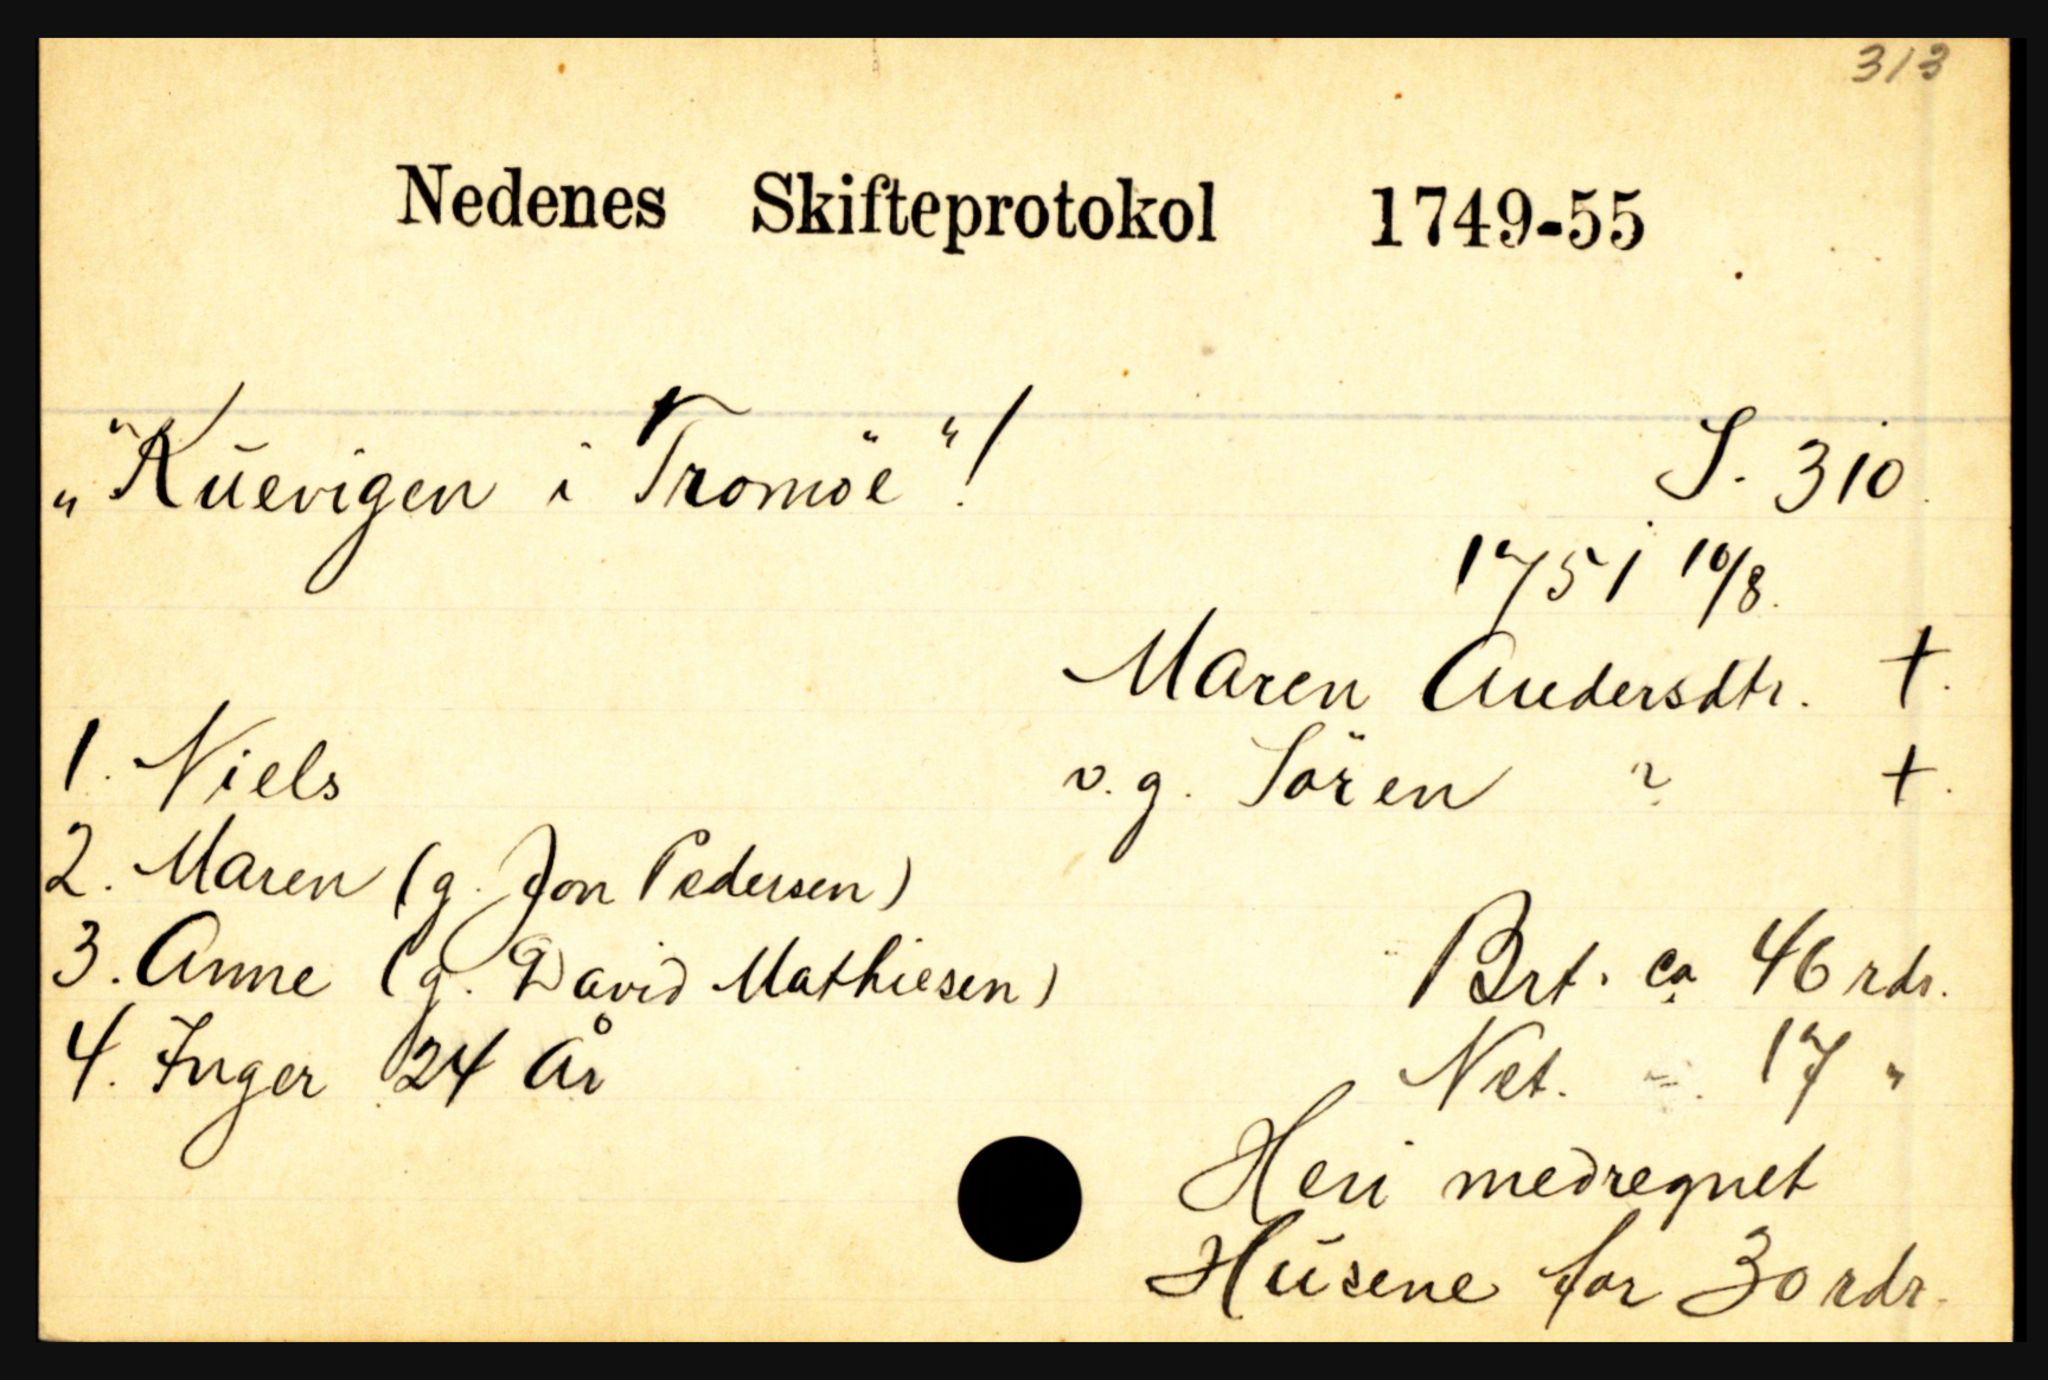 313
Nedenes Skifteprotokol 1749-55
„Kŭevigen i Tromöe"! S. 310.
1751 10/8.
Maren Andersdtr. †.
1. Niels v. g. Sören ? †.
2. Maren (g. Jon Pedersen)
3. Anne (g. David Mathiesen) Brt. ca 46 rdr.
4. Inger 24 År Net. " 17 "
Heri medregnet
Hŭsene for 30 rdr.